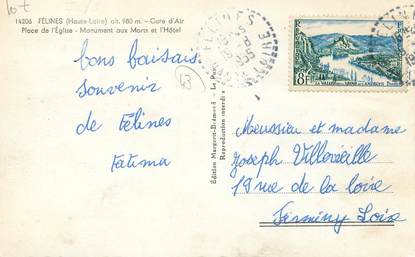 lot
14206 FÉLINES (Haute-Loire) alt. 980 m. - Cure d'Air
Place de l'Église - Monument aux Morts et l'Hôtel
bons baisais
souvenir
de Félines
Fatima
43
Édition Margerit-Brémond - Le Puy
Reproduction interdite
FELINES
HAUTE
8F
Meussieu et madame
Joseph Villevieille
19 rue de la loire
Firminy Loire